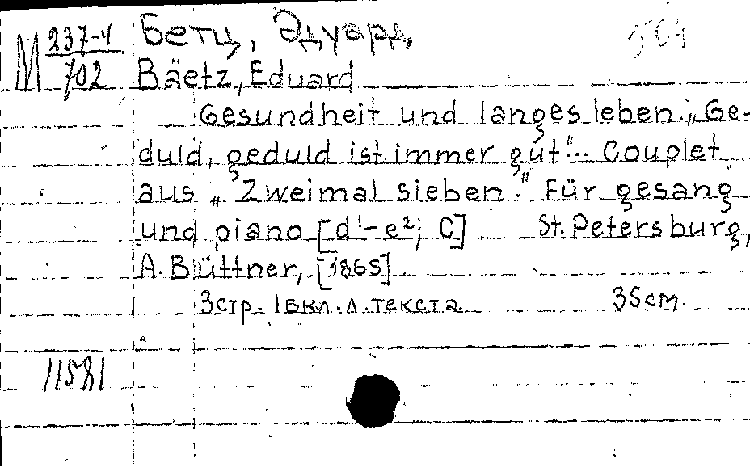 М 237-4 Бетц, Эдуард
702 Bäetz, Eduard
Gesundheit und langes leben. „Ge-
duld, geduld ist immer gut“... Couplet
aus „Zweimal sieben.“ Für gesang
und piano [d¹-e²; C] St. Petersburg,
A. Büttner, [1865]
3 стр. 1 вкл. л. текста 35 cm.
11581